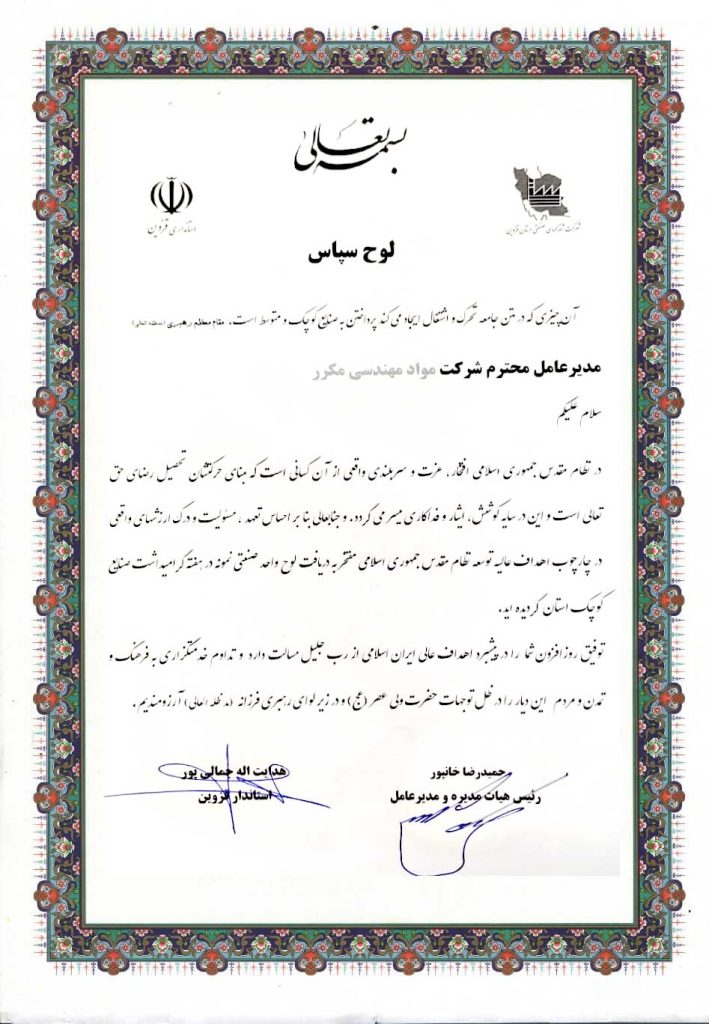 بسمه تعالی
استانداری قزوین
شرکت شهرکهای صنعتی استان قزوین
لوح سپاس
آن چیزی که در متن جامعه تحرک و اشتغال ایجاد می کند پرداختن به صنایع کوچک و متوسط است. مقام معظم رهبری (مدظله العالی)
مدیرعامل محترم شرکت مواد مهندسی مکرر
سلام علیکم
در نظام مقدس جمهوری اسلامی افتخار، عزت و سربلندی واقعی از آن کسانی است که مبنای حرکتشان تحصیل رضای حق
تعالی است و این در سایه کوشش، ایثار و فداکاری میسر می گردد. و جنابعالی بنا بر احساس تعهد، مسئولیت و درک ارزشهای واقعی
در چارچوب اهداف عالیه توسعه نظام مقدس جمهوری اسلامی مفتخر به دریافت لوح واحد صنعتی نمونه در هفته گرامیداشت صنایع
کوچک استان گردیده اید.
توفیق روز افزون شما را در پیشبرد اهداف عالی ایران اسلامی از رب جلیل مسالت دارد و تداوم خدمتگزاری به فرهنگ و
تمدن و مردم این دیار را در ظل توجهات حضرت ولی عصر (عج) و در زیر لوای رهبری فرزانه (مد ظله العالی) آرزومندیم.
حمیدرضا خانپور
رئیس هیات مدیره و مدیرعامل
هدایت اله جمالی پور
استاندار قزوین